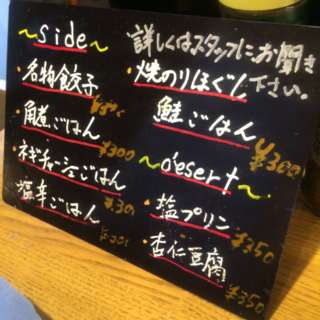 ~side~
名物餃子
角煮ごはん
¥300
ネギチャーシューごはん
塩辛ごはん
詳しくはスタッフにお聞き
下さい。
焼のりほぐし
鮭ごはん
¥300
~desert~
塩プリン
¥350
杏仁豆腐
¥350